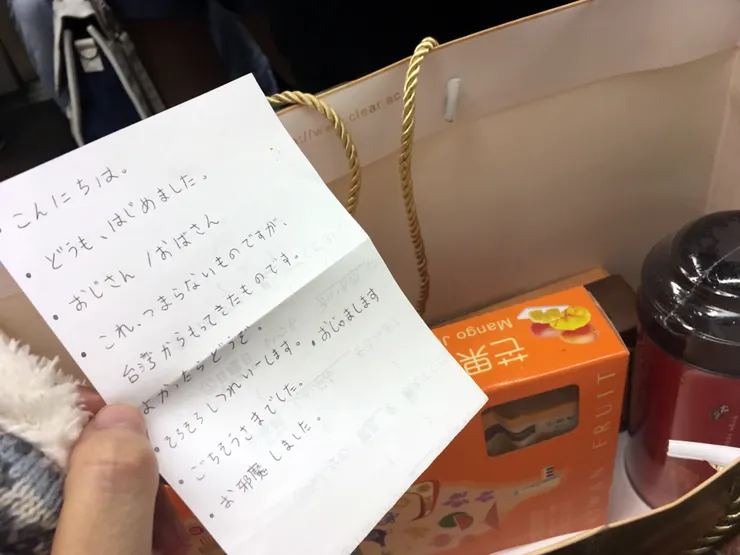 ・こんにちは。
・どうも、はじめました。
・おじさん / おばさん
・これ、つまらないものですが、
台湾からもってきたものです。
よかったらどうぞ。
・そろそろしつれいーします。・おじゃまします
・ごちそうさまでした。
・お邪魔しました。
芒果
Mango J
FRUIT